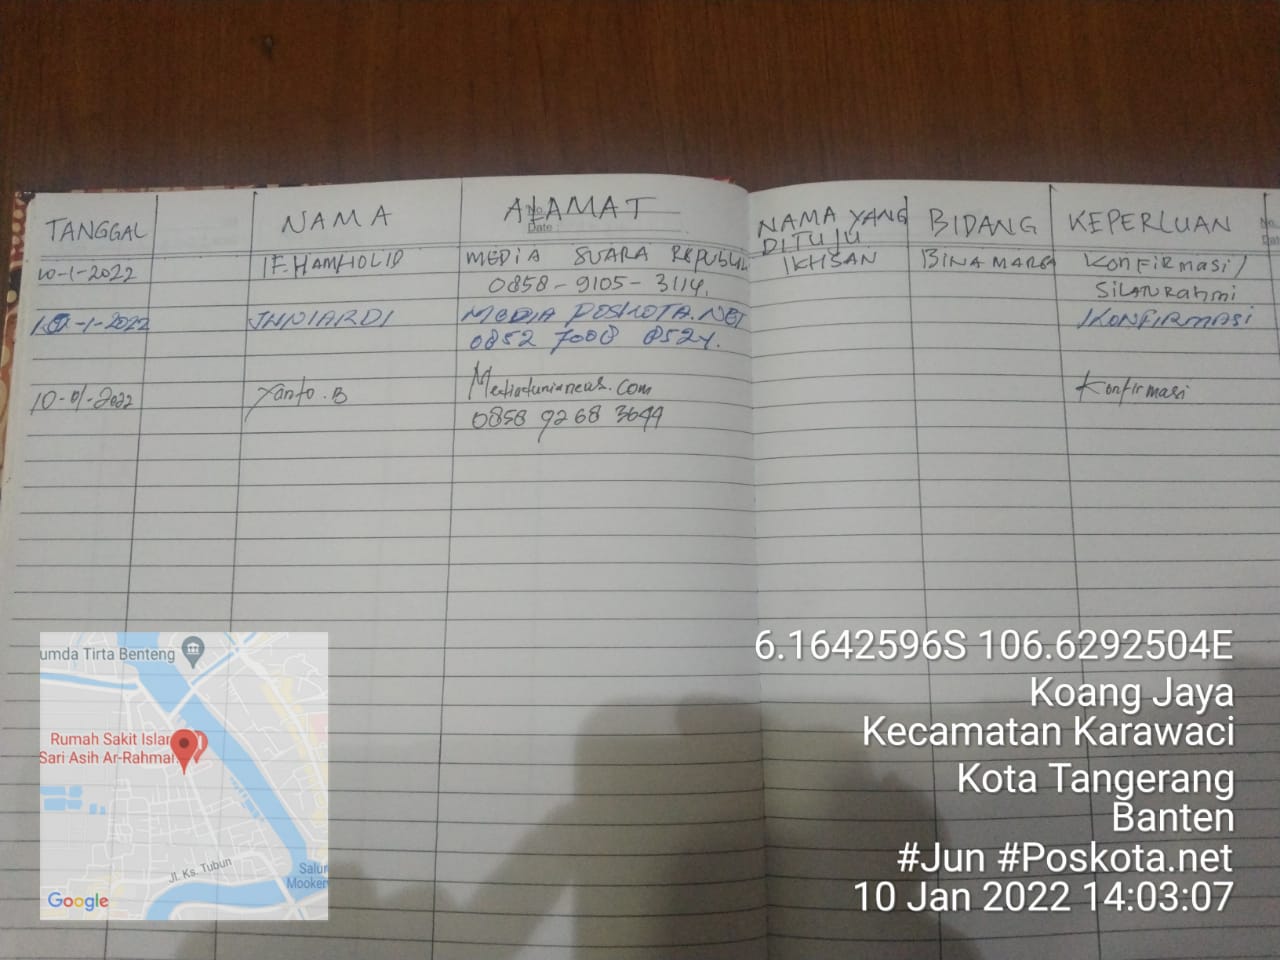 TANGGAL NAMA ALAMAT NAMA YANG DITUJU BIDANG KEPERLUAN
No.
Date
10-1-2022 MEDIA SUARA REPUBLIK IKHSAN BINA MARGA Konfirmasi/
0858-9105-3114. Silaturahmi
10-1-2022 JUNIARDI MEDIA POSKOTA.NET KONFIRMASI
0852 7008 8524.
10-01-2022 Yanto.B Mediadunianews.com Konfirmasi
0858 9268 3644
umda Tirta Benteng
Rumah Sakit Islam
Sari Asih Ar-Rahmar
Jl. Ks. Tubun
Salur
Mooker
Google
6.1642596S 106.6292504E
Koang Jaya
Kecamatan Karawaci
Kota Tangerang
Banten
#Jun #Poskota.net
10 Jan 2022 14:03:07